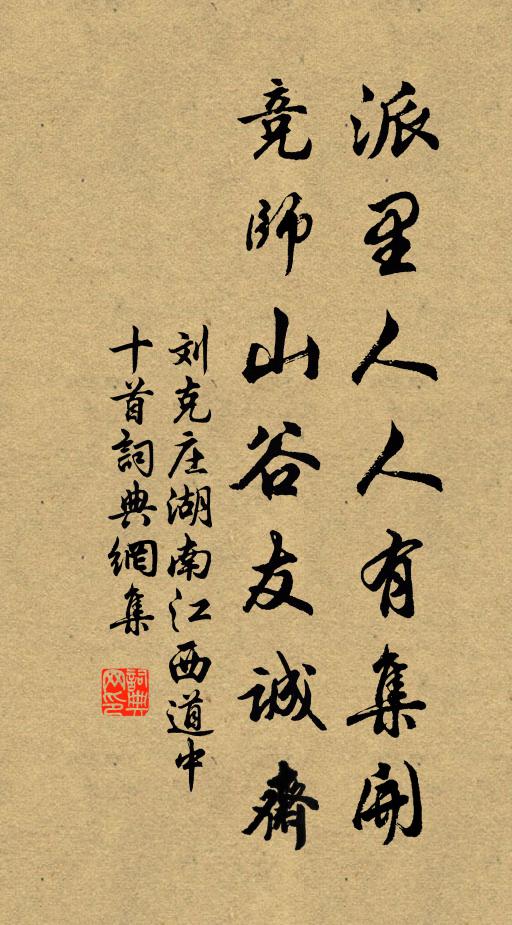 派里人人有集開
竞師山谷友诚齋
刘克庄湖南江西道中
十首詞典網集
詞典
网印